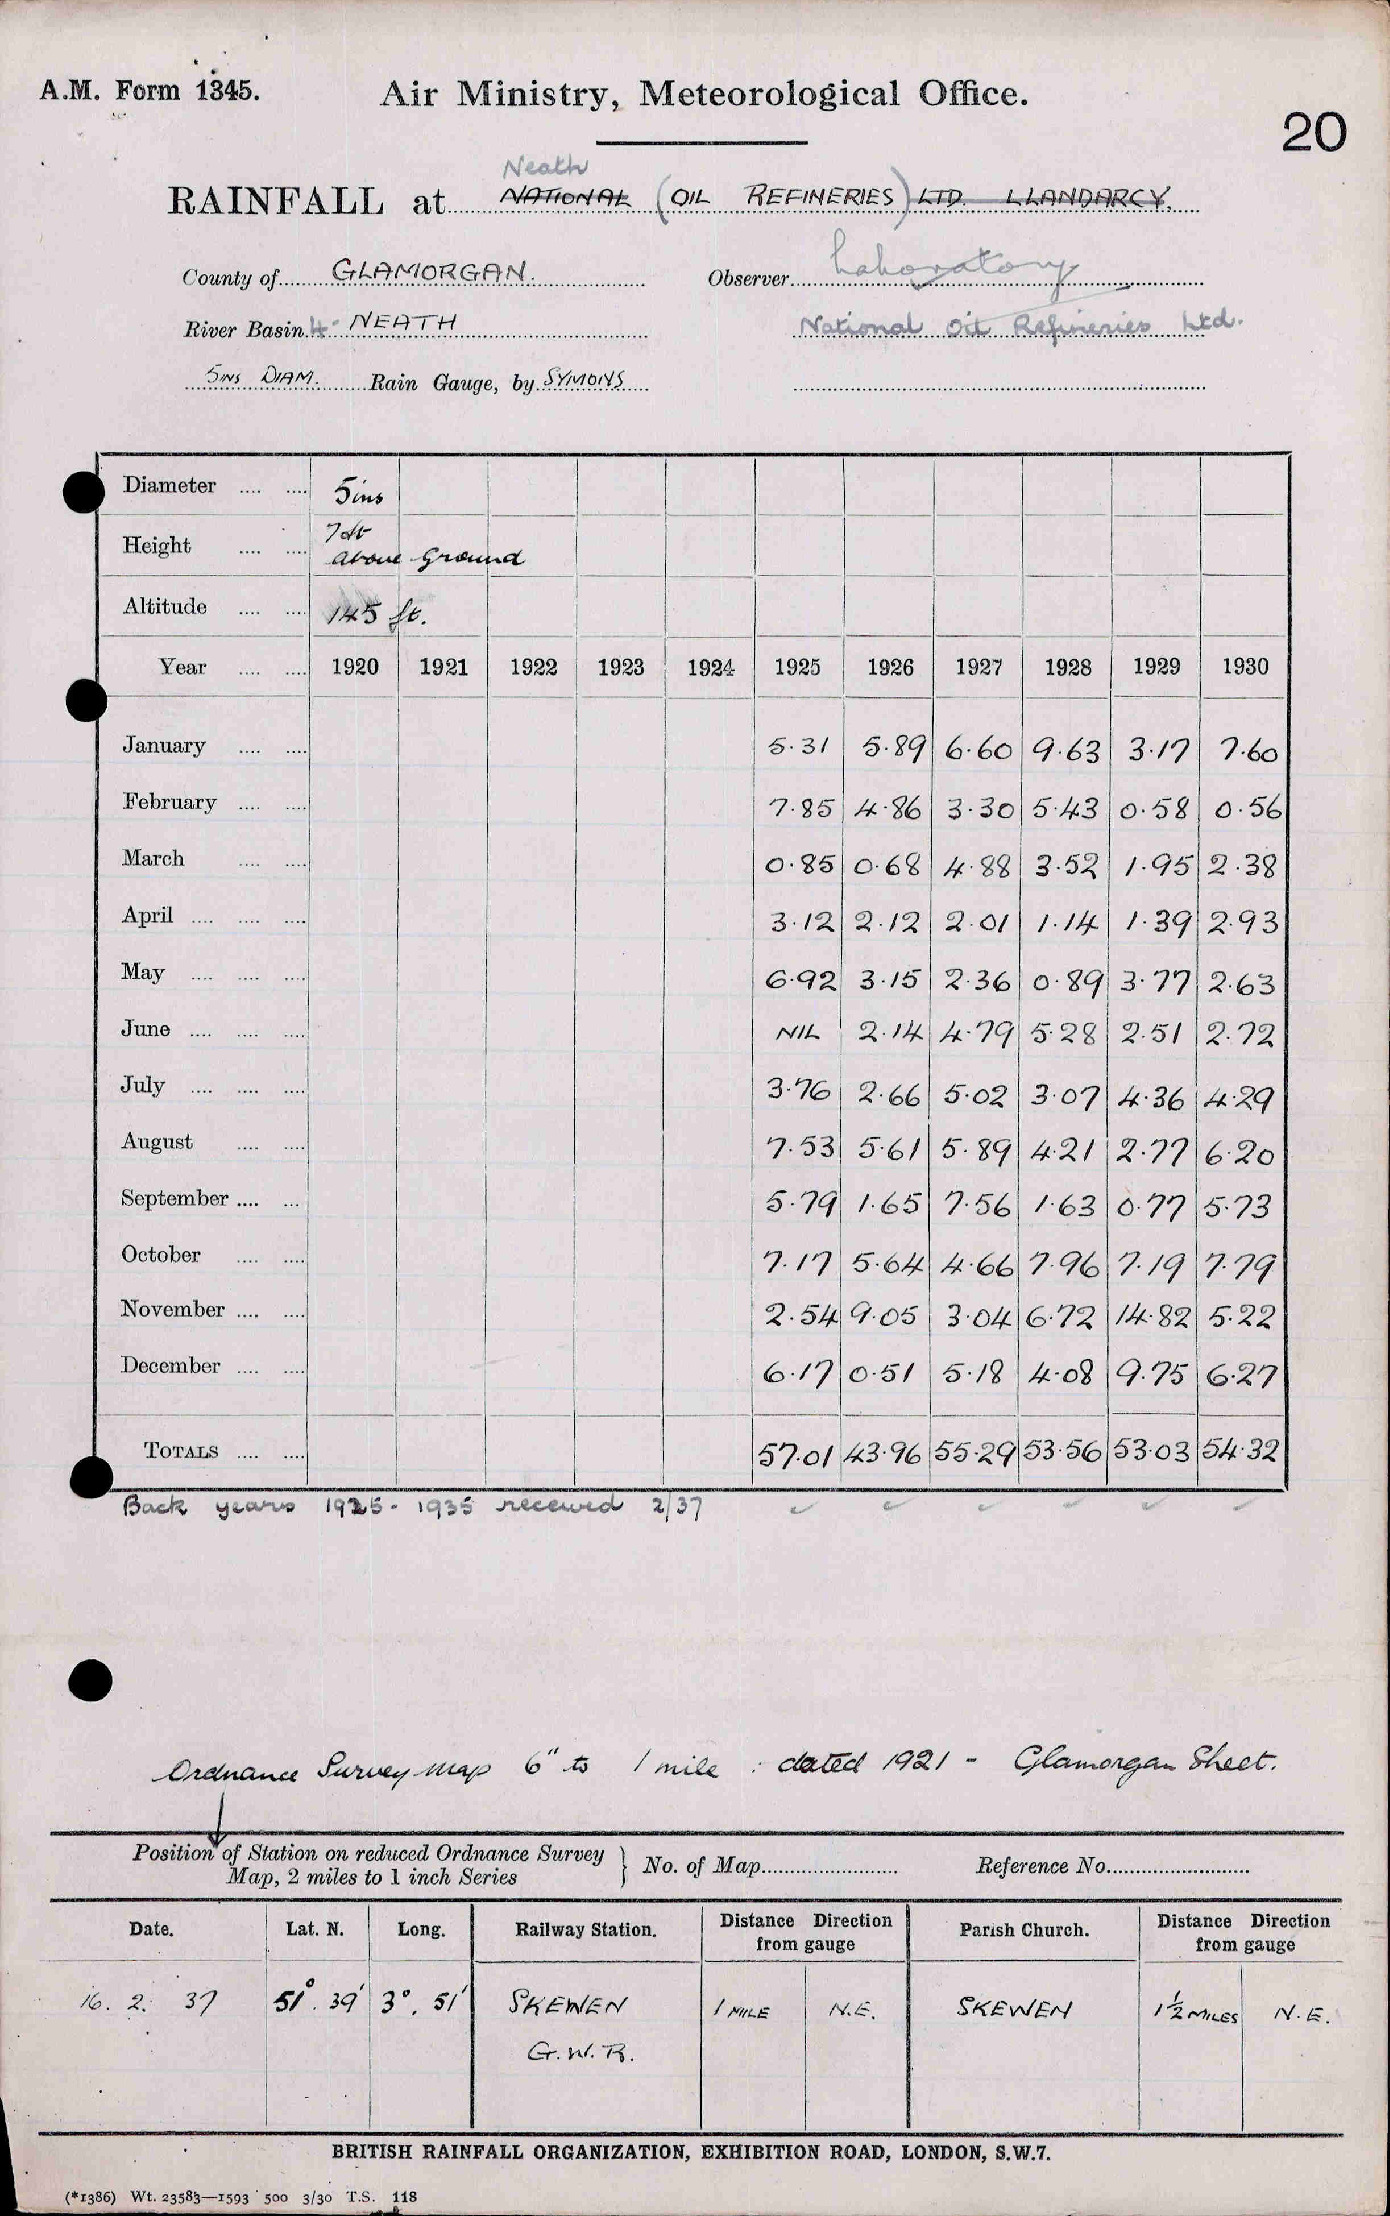 A.M. Form 1345.
Air Ministry, Meteorological Office.
20
Neath
RAINFALL at NATIONAL (OIL REFINERIES) LTD. LLANDARCY.
County of GLAMORGAN. Observer Laboratory
River Basin 4· NEATH National Oil Refineries Ltd.
5INS DIAM. Rain Gauge, by SYMONS
Diameter .... .... 5ins
Height .... .... 7ft above Ground
Altitude .... .... 145 ft.
Year .... .... 1920 1921 1922 1923 1924 1925 1926 1927 1928 1929 1930
January .... .... 5.31 5.89 6.60 9.63 3.17 7.60
February .... .... 7.85 4.86 3.30 5.43 0.58 0.56
March .... .... 0.85 0.68 4.88 3.52 1.95 2.38
April .... .... .... 3.12 2.12 2.01 1.14 1.39 2.93
May .... .... .... 6.92 3.15 2.36 0.89 3.77 2.63
June .... .... .... NIL 2.14 4.79 5.28 2.51 2.72
July .... .... .... 3.76 2.66 5.02 3.07 4.36 4.29
August .... .... 7.53 5.61 5.89 4.21 2.77 6.20
September .... ... 5.79 1.65 7.56 1.63 0.77 5.73
October .... .... 7.17 5.64 4.66 7.96 7.19 7.79
November .... .... 2.54 9.05 3.04 6.72 14.82 5.22
December .... .... 6.17 0.51 5.18 4.08 9.75 6.27
TOTALS .... .... 57.01 43.96 55.29 53.56 53.03 54.32
Back years 1925 - 1935 received 2/37
Ordnance Survey Map 6" to 1 mile : dated 1921 - Glamorgan Sheet.
Position of Station on reduced Ordnance Survey
Map, 2 miles to 1 inch Series } No. of Map Reference No.
Date. Lat. N. Long. Railway Station. Distance Direction from gauge Parish Church. Distance Direction from gauge
16. 2. 37 51°. 39' 3°. 51' SKEWEN 1 MILE N.E. SKEWEN 1½ MILES N.E.
G.W.R.
BRITISH RAINFALL ORGANIZATION, EXHIBITION ROAD, LONDON, S.W.7.
(*1386) Wt. 23583—1593 500 3/30 T.S. 118